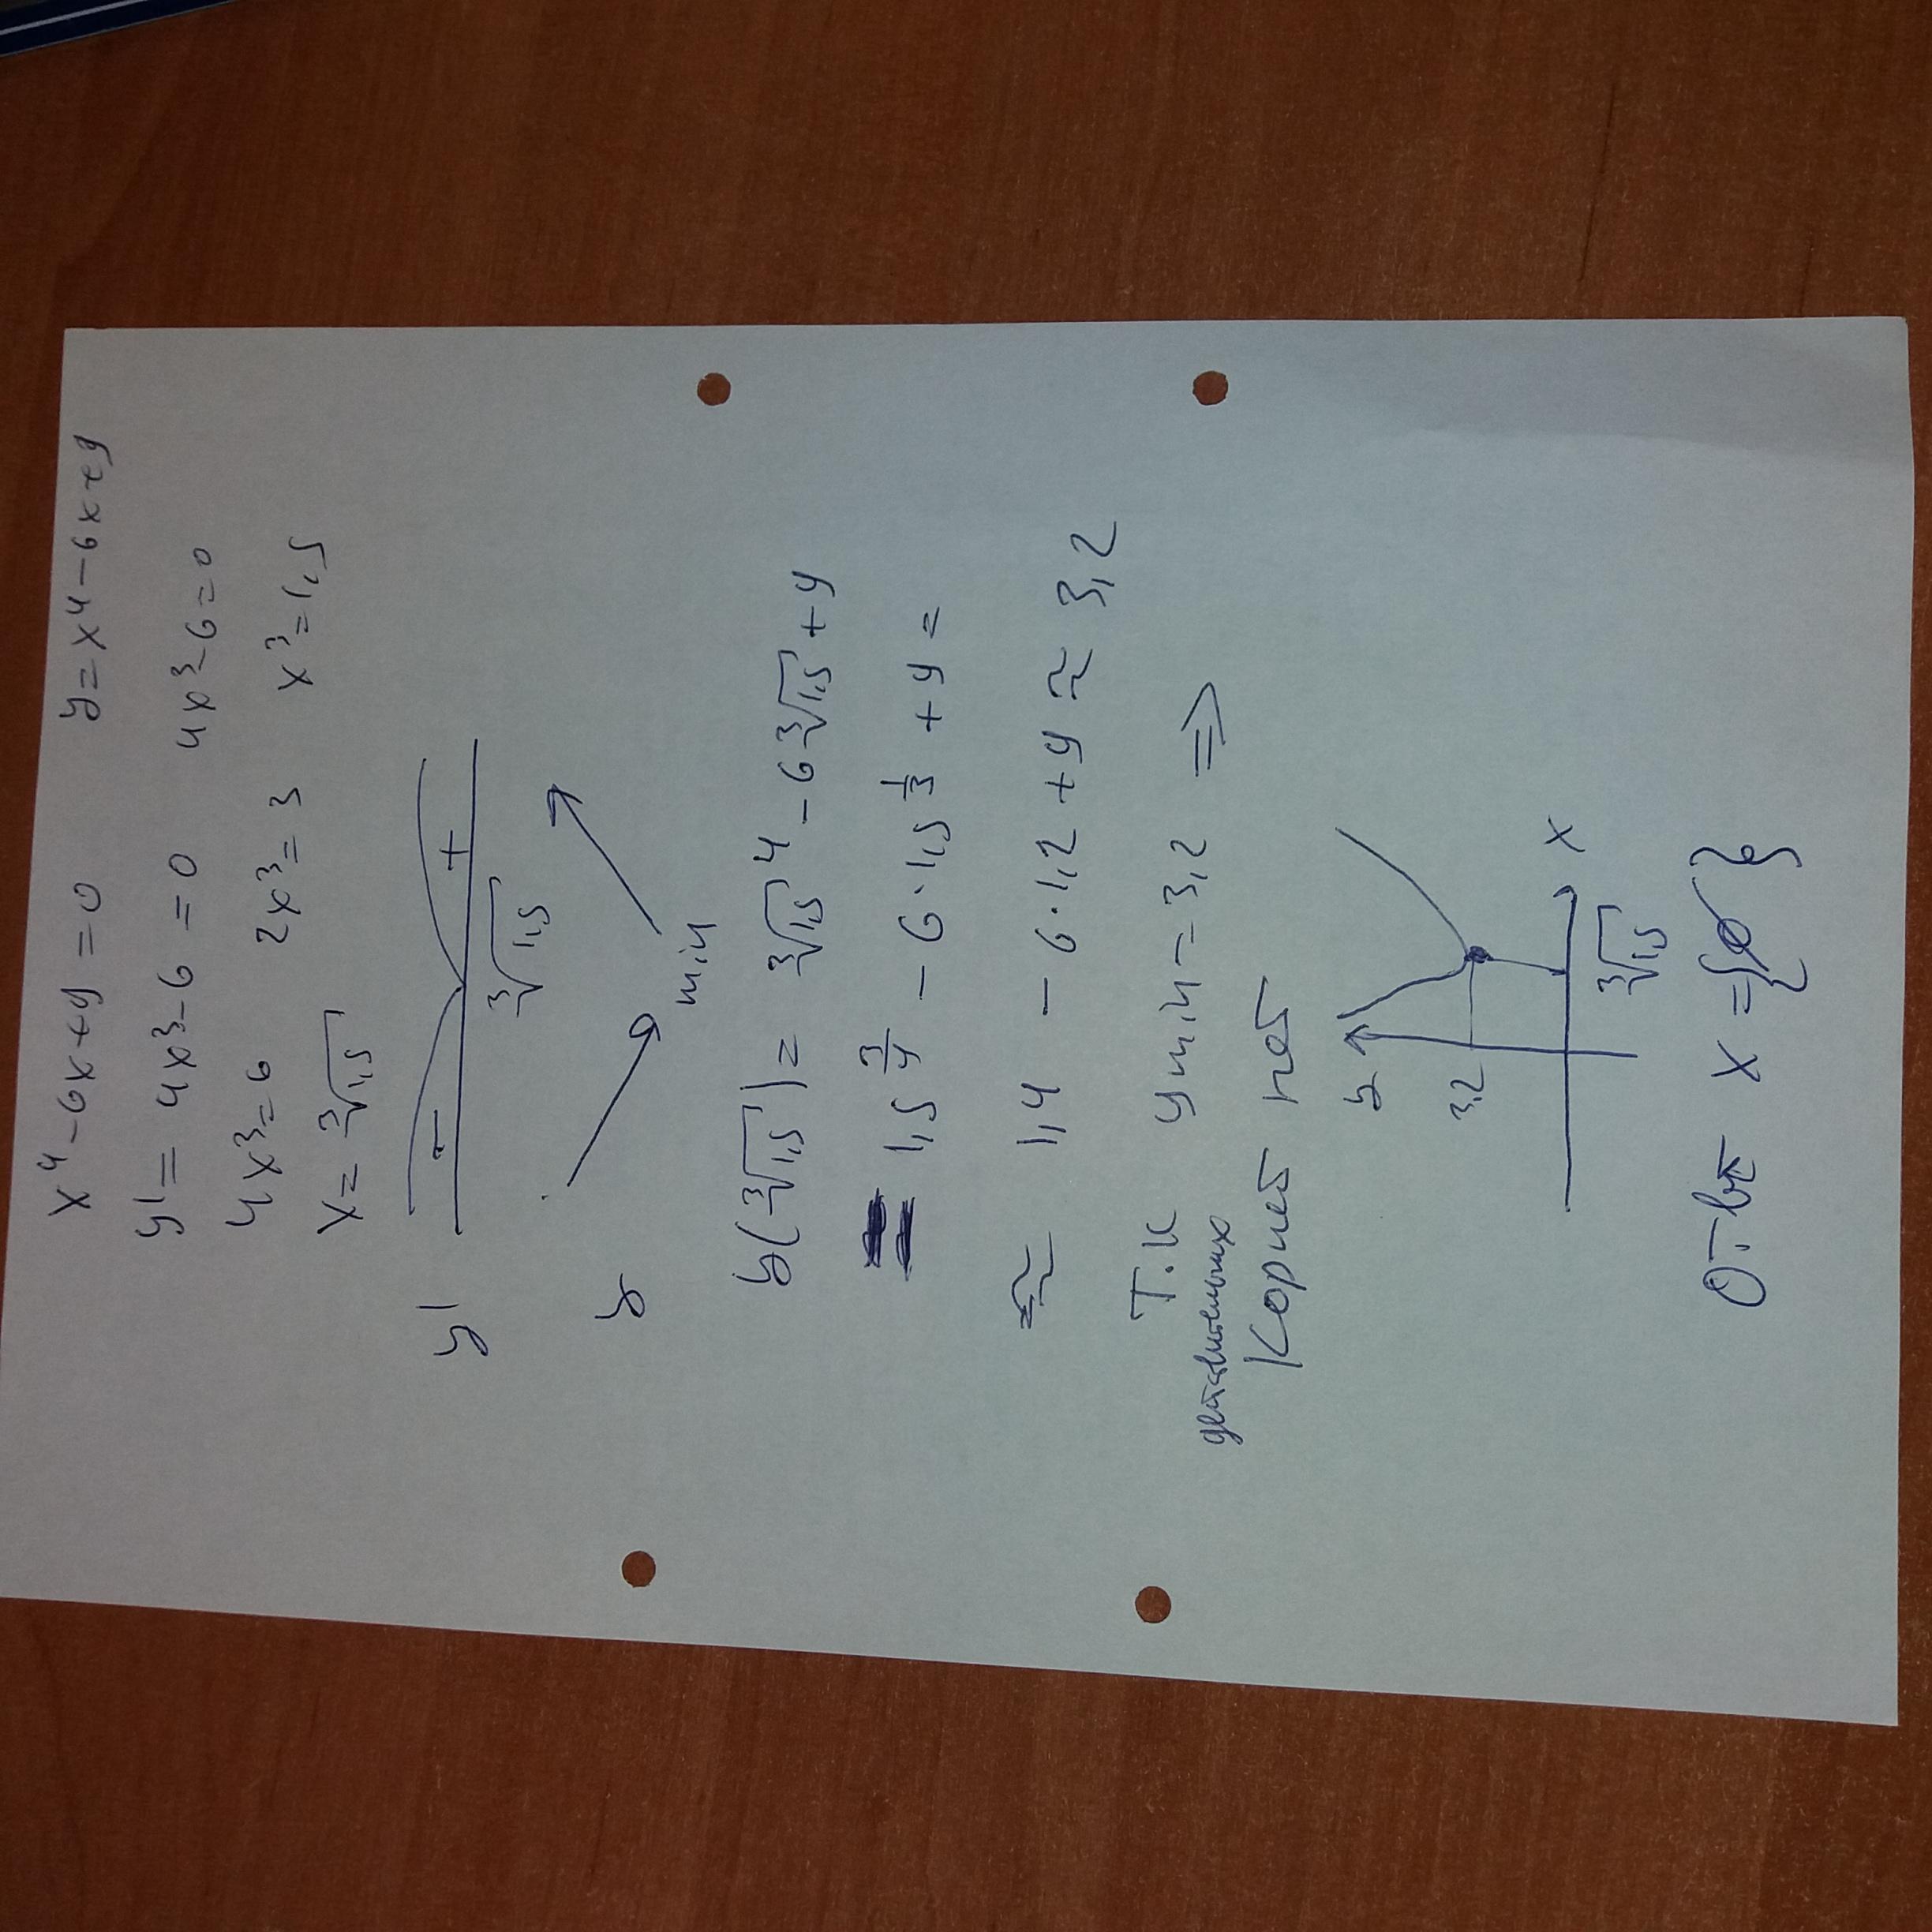 x⁴-6x+9=0 y=x⁴-6x+9
y'=4x³-6=0 4x³-6=0
4x³=6 2x³=3 x³=1,5
x=∛1,5
y' - +
∛1,5
y
min
y(∛1,5)=∛1,5⁴-6∛1,5+9
=1,5^(3/4)-6·1,5^(1/3)+9=
≈ 1,4-6·1,2+9≈3,2
Т.к ymin=3,2 ⇒
действительных
корней нет
y
3,2
x
∛1,5
Ответ x={∅}